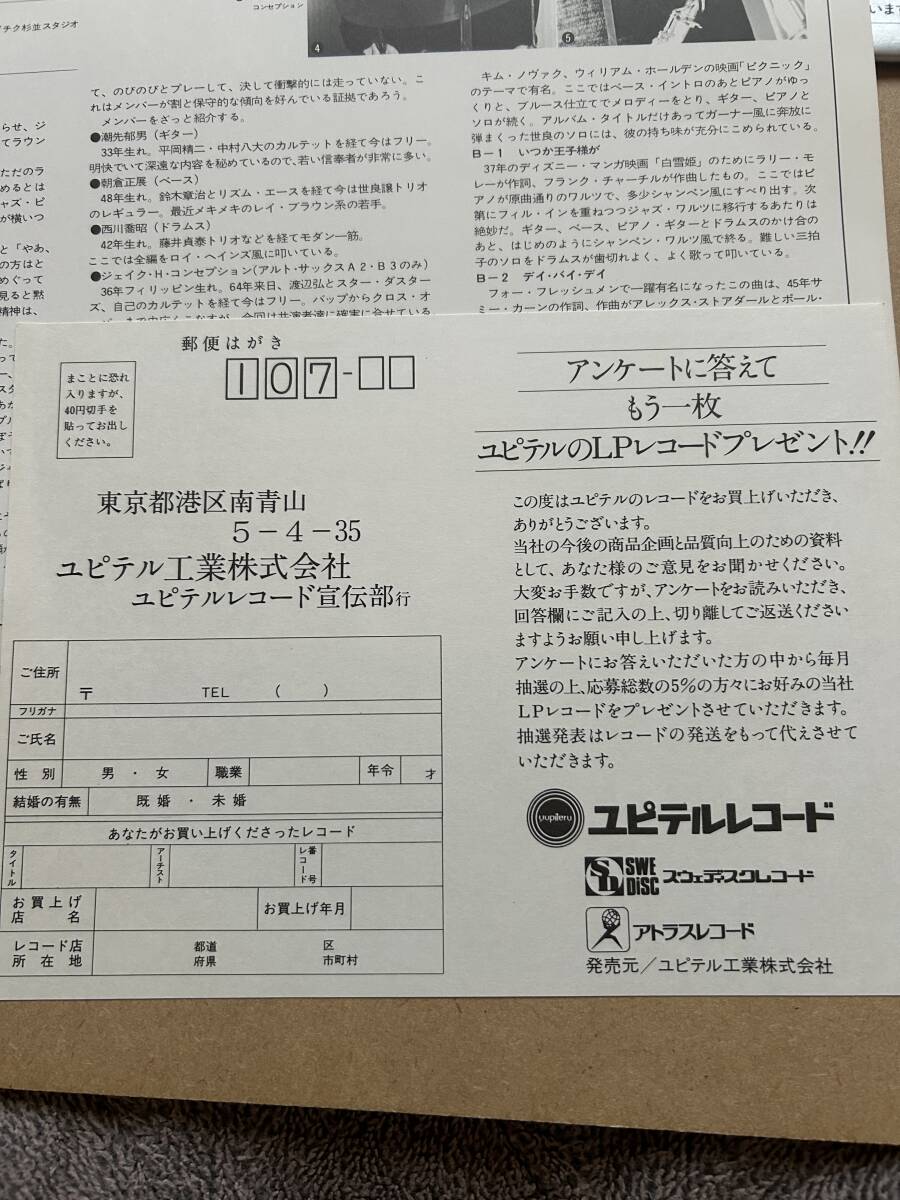 コンセプション
チク杉並スタジオ
4
5
て、のびのびとプレーして、決して衝撃的には走っていない。こ
れはメンバーが割と保守的な傾向を好んでいる証拠であろう。
メンバーをざっと紹介する。
●潮先郁男(ギター)
33年生れ。平岡精二・中村八大のカルテットを経て今はフリー。
明快でいて深遠な内容を秘めているので、若い信奉者が非常に多い。
●朝倉正展(ベース)
48年生れ。鈴木章治とリズム・エースを経て今は世良譲トリオ
のレギュラー。最近メキメキのレイ・ブラウン系の若手。
●西川喬昭(ドラムス)
42年生れ。藤井貞泰トリオなどを経てモダン一筋。
ここでは全編をロイ・ヘインズ風に叩いている。
●ジェイク・H・コンセプション(アルト・サックスA2・B3のみ)
36年フィリッピン生れ。64年来日、渡辺弘とスター・ダスター
ズ、自己のカルテットを経て今はフリー。バップからクロス・オ
キム・ノヴァク、ウィリアム・ホールデンの映画「ピクニック」
のテーマで有名。ここではベース・イントロのあとピアノがゆっ
くりと、ブルース仕立てでメロディーをとり、ギター、ピアノと
ソロが続く。アルバム・タイトルだけあってガーナー風に奔放に
弾まくった世良のソロには、彼の持ち味が充分にこめられている。
B－1 いつか王子様が
37年のディズニー・マンガ映画「白雪姫」のためにラリー・モ
レーが作詞、フランク・チャーチルが作曲したもの。ここではピ
アノが原曲通りのワルツで、多少シャンペン風にすべり出す。次
第にフィル・インを重ねつつジャズ・ワルツに移行するあたりは
絶妙だ。ギター、ベース、ピアノ・ギターとドラムスのかけ合の
あと、はじめのようにシャンペン・ワルツ風で終る。難しい三拍
子のソロをドラムスが歯切れよく、よく歌って叩いている。
B－2 デイ・バイ・デイ
フォー・フレッシュメンで一躍有名になったこの曲は、45年サ
ミー・カーンの作詞、作曲がアレックス・ストアダールとポール・
郵便はがき
107-
まことに恐れ
入りますが、
40円切手を
貼ってお出し
ください。
東京都港区南青山
5－4－35
ユピテル工業株式会社
ユピテルレコード宣伝部行
ご住所
〒 TEL ( )
フリガナ
ご氏名
性別 男・女 職業 年令 才
結婚の有無 既婚・未婚
あなたがお買い上げくださったレコード
タイトル アーチスト レコード番号
お買上げ店名 お買上げ年月
レコード店所在地 都道府県 区市町村
アンケートに答えて
もう一枚
ユピテルのLPレコードプレゼント!!
この度はユピテルのレコードをお買上げいただき、
ありがとうございます。
当社の今後の商品企画と品質向上のための資料
として、あなた様のご意見をお聞かせください。
大変お手数ですが、アンケートをお読みいただき、
回答欄にご記入の上、切り離してご返送ください
ますようお願い申し上げます。
アンケートにお答えいただいた方の中から毎月
抽選の上、応募総数の5%の方々にお好みの当社
LPレコードをプレゼントさせていただきます。
抽選発表はレコードの発送をもって代えさせて
いただきます。
yupiteru ユピテルレコード
SD SWE DISC スウェーディスクレコード
アトラスレコード
発売元/ユピテル工業株式会社